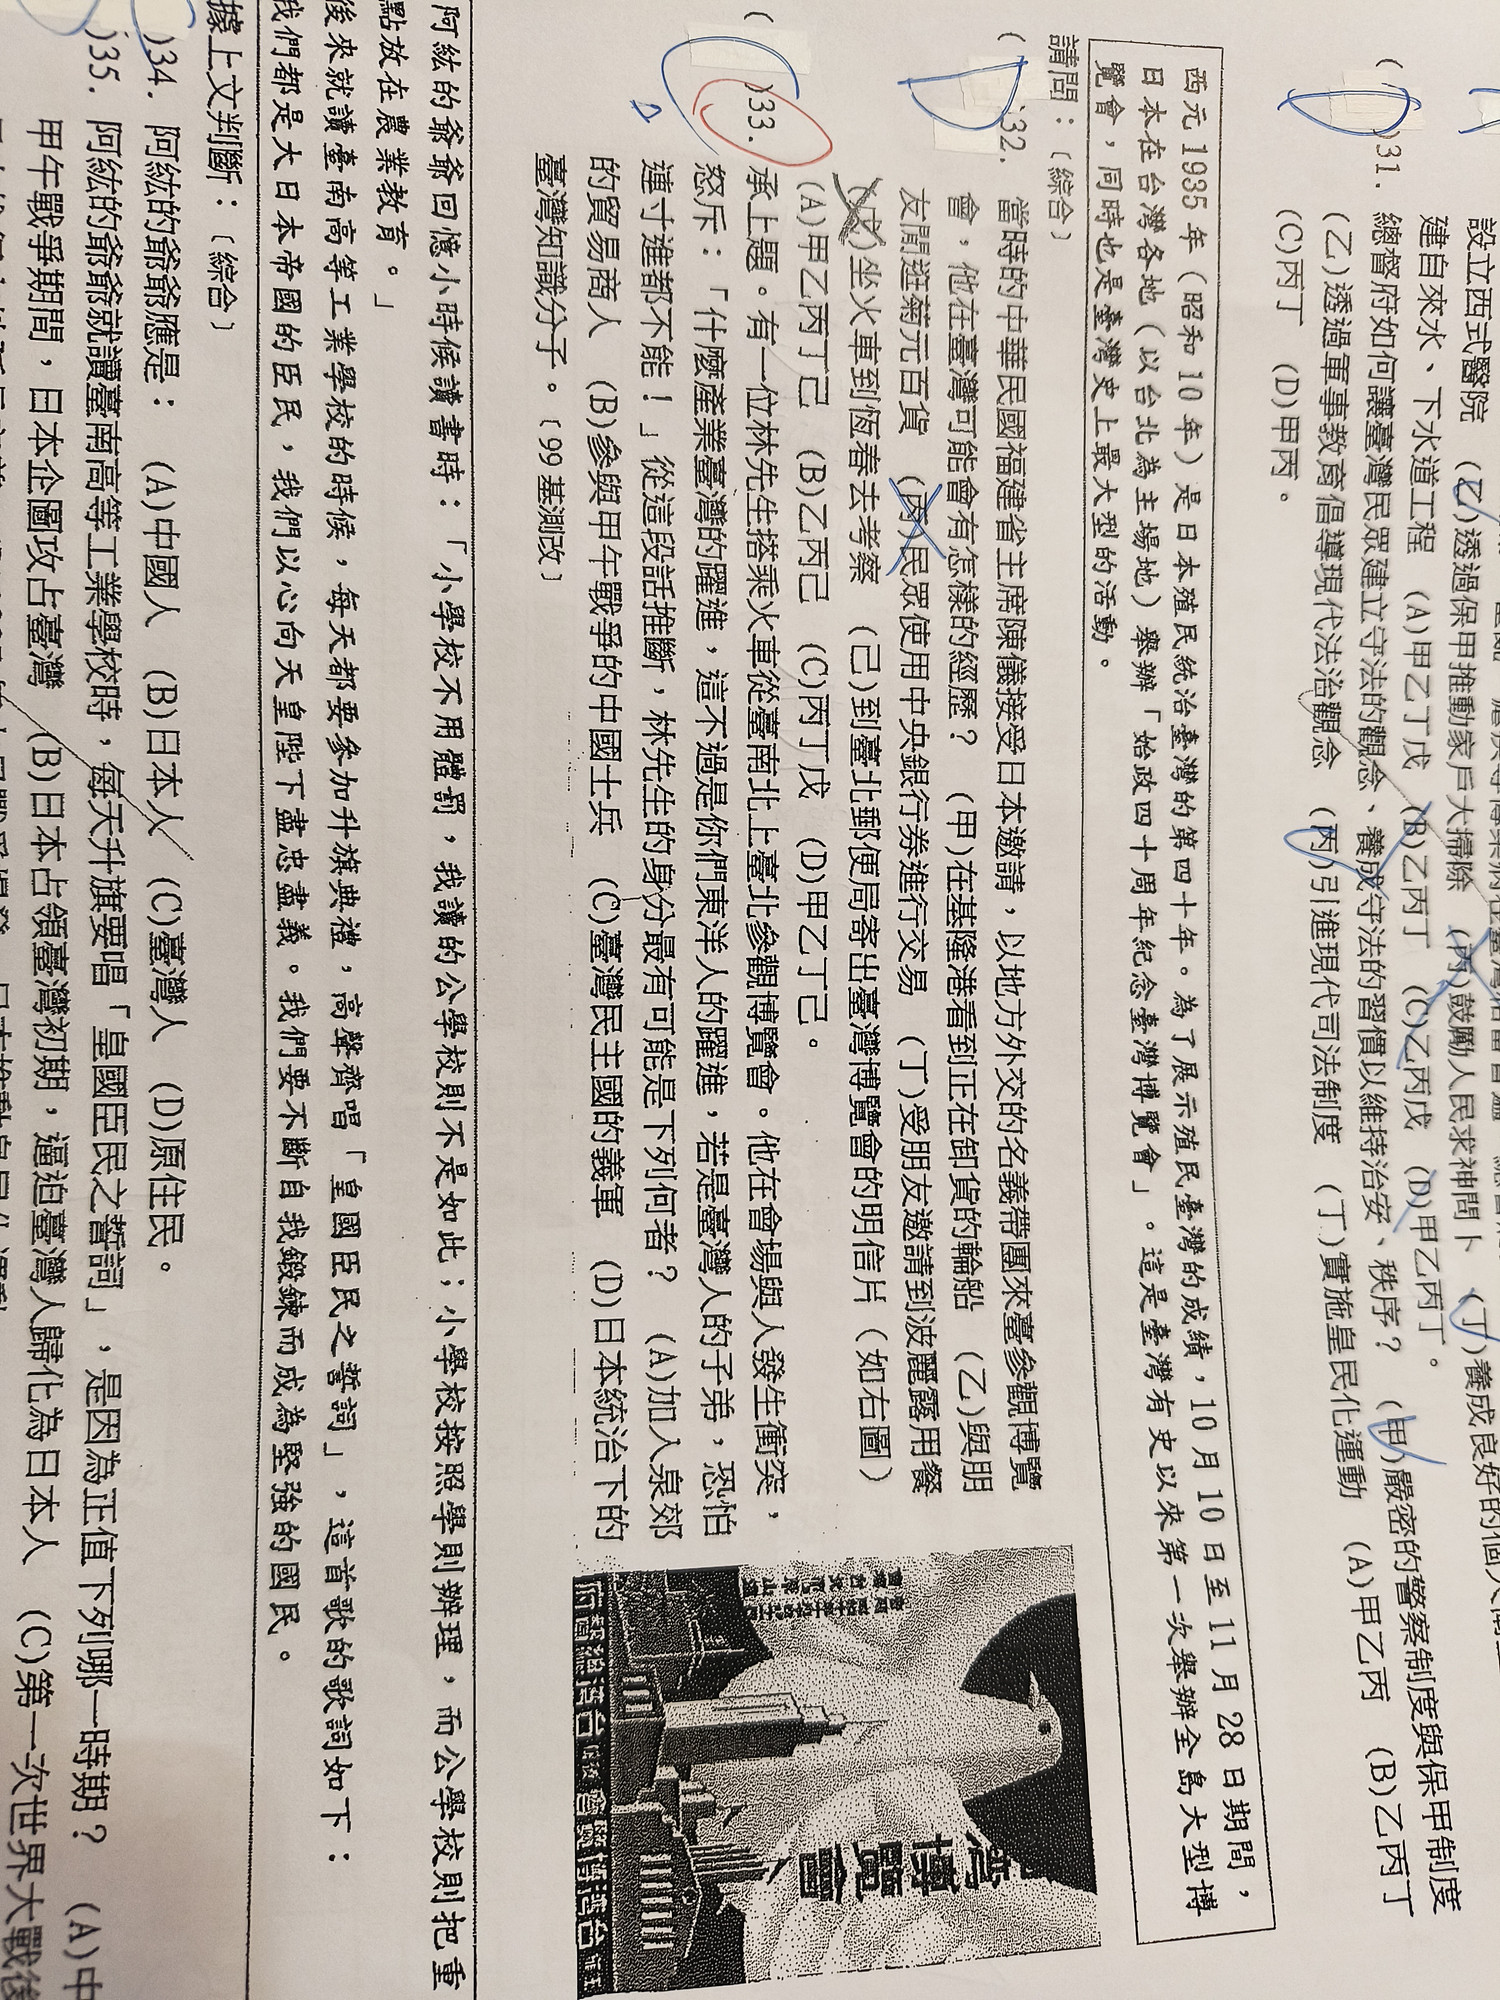 設立西式醫院 (乙)透過保甲推動家戶大掃除 (丙)鼓勵人民求神問卜 (丁)養成良好的個人
建自來水、下水道工程 (A)甲乙丁戊 (B)乙丙丁 (C)乙丙戊 (D)甲乙丙丁。
( )31. 總督府如何讓臺灣民眾建立守法的觀念、養成守法的習慣以維持治安、秩序? (甲)嚴密的警察制度與保甲制度
(乙)透過軍事教育倡導現代法治觀念 (丙)引進現代司法制度 (丁)實施皇民化運動 (A)甲乙丙 (B)乙丙丁
(C)丙丁 (D)甲丙。
西元 1935 年(昭和 10 年)是日本殖民統治臺灣的第四十年。為了展示殖民臺灣的成績,10 月 10 日至 11 月 28 日期間,
日本在台灣各地(以台北為主場地)舉辦「始政四十周年紀念臺灣博覽會」。這是臺灣有史以來第一次舉辦全島大型博
覽會,同時也是臺灣史上最大型的活動。
請問:〔綜合〕
( 32. 當時的中華民國福建省主席陳儀接受日本邀請,以地方外交的名義帶團來臺參觀博覽
會,他在臺灣可能會有怎樣的經歷? (甲)在基隆港看到正在卸貨的輪船 (乙)與朋
友閒逛菊元百貨 (丙)民眾使用中央銀行券進行交易 (丁)受朋友邀請到波麗露用餐
(戊)坐火車到恆春去考察 (己)到臺北郵便局寄出臺灣博覽會的明信片(如右圖)
(A)甲乙丙丁己 (B)乙丙己 (C)丙丁戊 (D)甲乙丁己。
D
( )33. 承上題。有一位林先生搭乘火車從臺南北上臺北參觀博覽會。他在會場與人發生衝突,
怒斥:「什麼產業臺灣的躍進,這不過是你們東洋人的躍進,若是臺灣人的子弟,恐怕
連寸進都不能!」從這段話推斷,林先生的身分最有可能是下列何者? (A)加入泉郊
的貿易商人 (B)參與甲午戰爭的中國士兵 (C)臺灣民主國的義軍 (D)日本統治下的
臺灣知識分子。〔99 基測改〕
C
D
灣博覽會
阿紘的爺爺回憶小時候讀書時:「小學校不用體罰,我讀的公學校則不是如此;小學校按照學則辦理,而公學校則把重
點放在農業教育。」
後來就讀臺南高等工業學校的時候,每天都要參加升旗典禮,高聲齊唱「皇國臣民之誓詞」,這首歌的歌詞如下:
我們都是大日本帝國的臣民,我們以心向天皇陛下盡忠盡義。我們要不斷自我鍛鍊而成為堅強的國民。
據上文判斷:〔綜合〕
)34. 阿紘的爺爺應是: (A)中國人 (B)日本人 (C)臺灣人 (D)原住民。
)35. 阿紘的爺爺就讀臺南高等工業學校時,每天升旗要唱「皇國臣民之誓詞」,是因為正值下列哪一時期? (A)中
甲午戰爭期間,日本企圖攻占臺灣 (B)日本占領臺灣初期,逼迫臺灣人歸化為日本人 (C)第一次世界大戰後